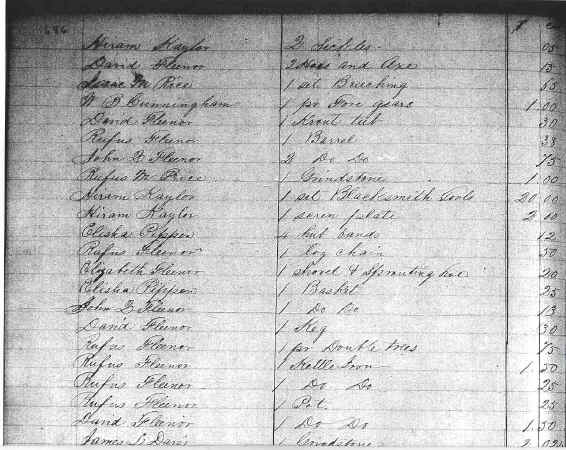 686 $ c
Hiram Kaylor 2 Sickles 05
David Fleenor 2 Hoes and Axe 15
Isaac M Rice 1 set Breeching 55
W B Cunningham 1 pr Fore gears 1.00
David Fleenor 1 Krout tub 30
Rufus Fleenor 1 Barrel 38
John Z Fleenor 2 Do Do 75
Rufus M Rice 1 Grindstone 1.00
Hiram Kaylor 1 set Blacksmith Tools 20.00
Hiram Kaylor 1 screw plate 2 00
Elisha Pippen 4 hub bands 12
Rufus Fleenor 1 log chain 50
Elizabeth Fleenor 1 shovel & Sprouting hoe 20
Elisha Pippen 1 Basket 25
John Z Fleenor 1 Do Do 13
David Fleenor 1 Keg 30
Rufus Fleenor 1 pr Double trees 75
Rufus Fleenor 1 Kettle Iron 1.50
Rufus Fleenor 1 Do Do 25
Rufus Fleenor 1 Pot 25
David Fleenor 1 Do Do 1.50
James S Davis 1 Grindstone 2.02